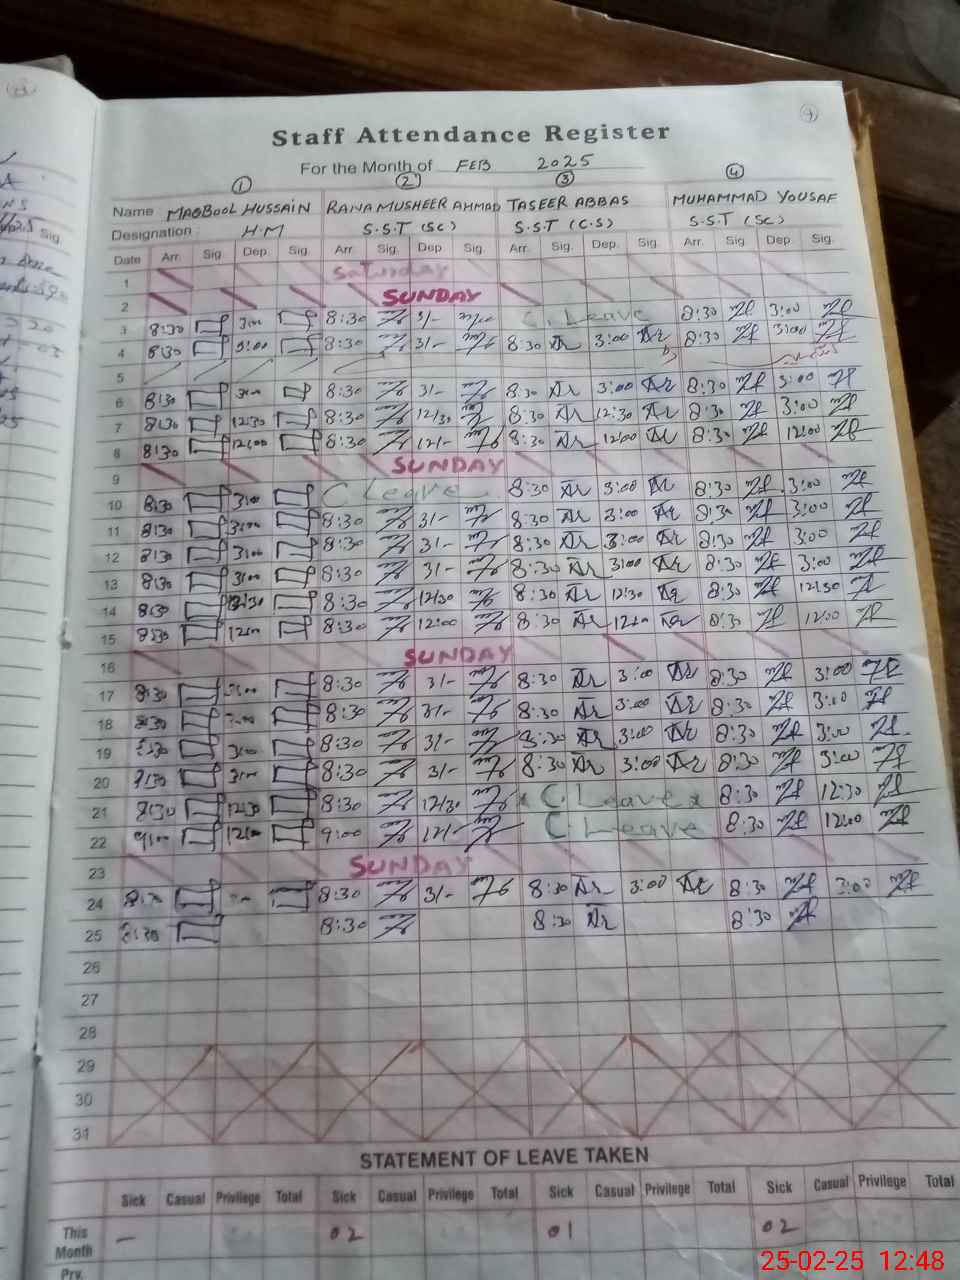 4
Staff Attendance Register
For the Month of FEB 2025
1 2 3 4
Name MAQBOOL HUSSAIN RANA MUSHEER AHMAD TASEER ABBAS MUHAMMAD YOUSAF
Designation: H.M S.S.T (SC) S.S.T (C.S) S.S.T (SC)
Date Arr. Sig. Dep. Sig. Arr. Sig. Dep. Sig. Arr. Sig. Dep. Sig. Arr. Sig. Dep. Sig.
1 Saturday
2 SUNDAY
3 8:30 3:00 8:30 3/- C. Leave 8:30 3:00
4 8:30 3:00 8:30 3/- 8:30 3:00 8:30 3:00
5
6 8:30 3:00 8:30 3/- 8:30 3:00 8:30 3:00
7 8:30 12:30 8:30 12/30 8:30 12:30 8:30 3:00
8 8:30 12:00 8:30 12/- 8:30 12:00 8:30 12:00
9 SUNDAY
10 8:30 3:00 C Leave 8:30 3:00 8:30 3:00
11 8:30 3:00 8:30 3/- 8:30 3:00 8:30 3:00
12 8:30 3:00 8:30 3/- 8:30 3:00 8:30 3:00
13 8:30 3:00 8:30 3/- 8:30 3:00 8:30 3:00
14 8:30 12:30 8:30 12/30 8:30 12:30 8:30 12:30
15 8:30 12:00 8:30 12:00 8:30 12:00 8:30 12:00
16 SUNDAY
17 8:30 3:00 8:30 3/- 8:30 3:00 8:30 3:00
18 8:30 3:00 8:30 3/- 8:30 3:00 8:30 3:00
19 8:30 3:00 8:30 3/- 8:30 3:00 8:30 3:00
20 8:30 3:00 8:30 3/- 8:30 3:00 8:30 3:00
21 8:30 12:30 8:30 12/30 C. Leave 8:30 12:30
22 9:00 12:00 9:00 12/- C. Leave 8:30 12:00
23 SUNDAY
24 8:30 8:30 3/- 8:30 3:00 8:30 3:00
25 8:30 8:30 8:30 8:30
26
27
28
29
30
31
STATEMENT OF LEAVE TAKEN
Sick Casual Privilege Total Sick Casual Privilege Total Sick Casual Privilege Total Sick Casual Privilege Total
This Month — 02 01 02
Prv.
25-02-25 12:48